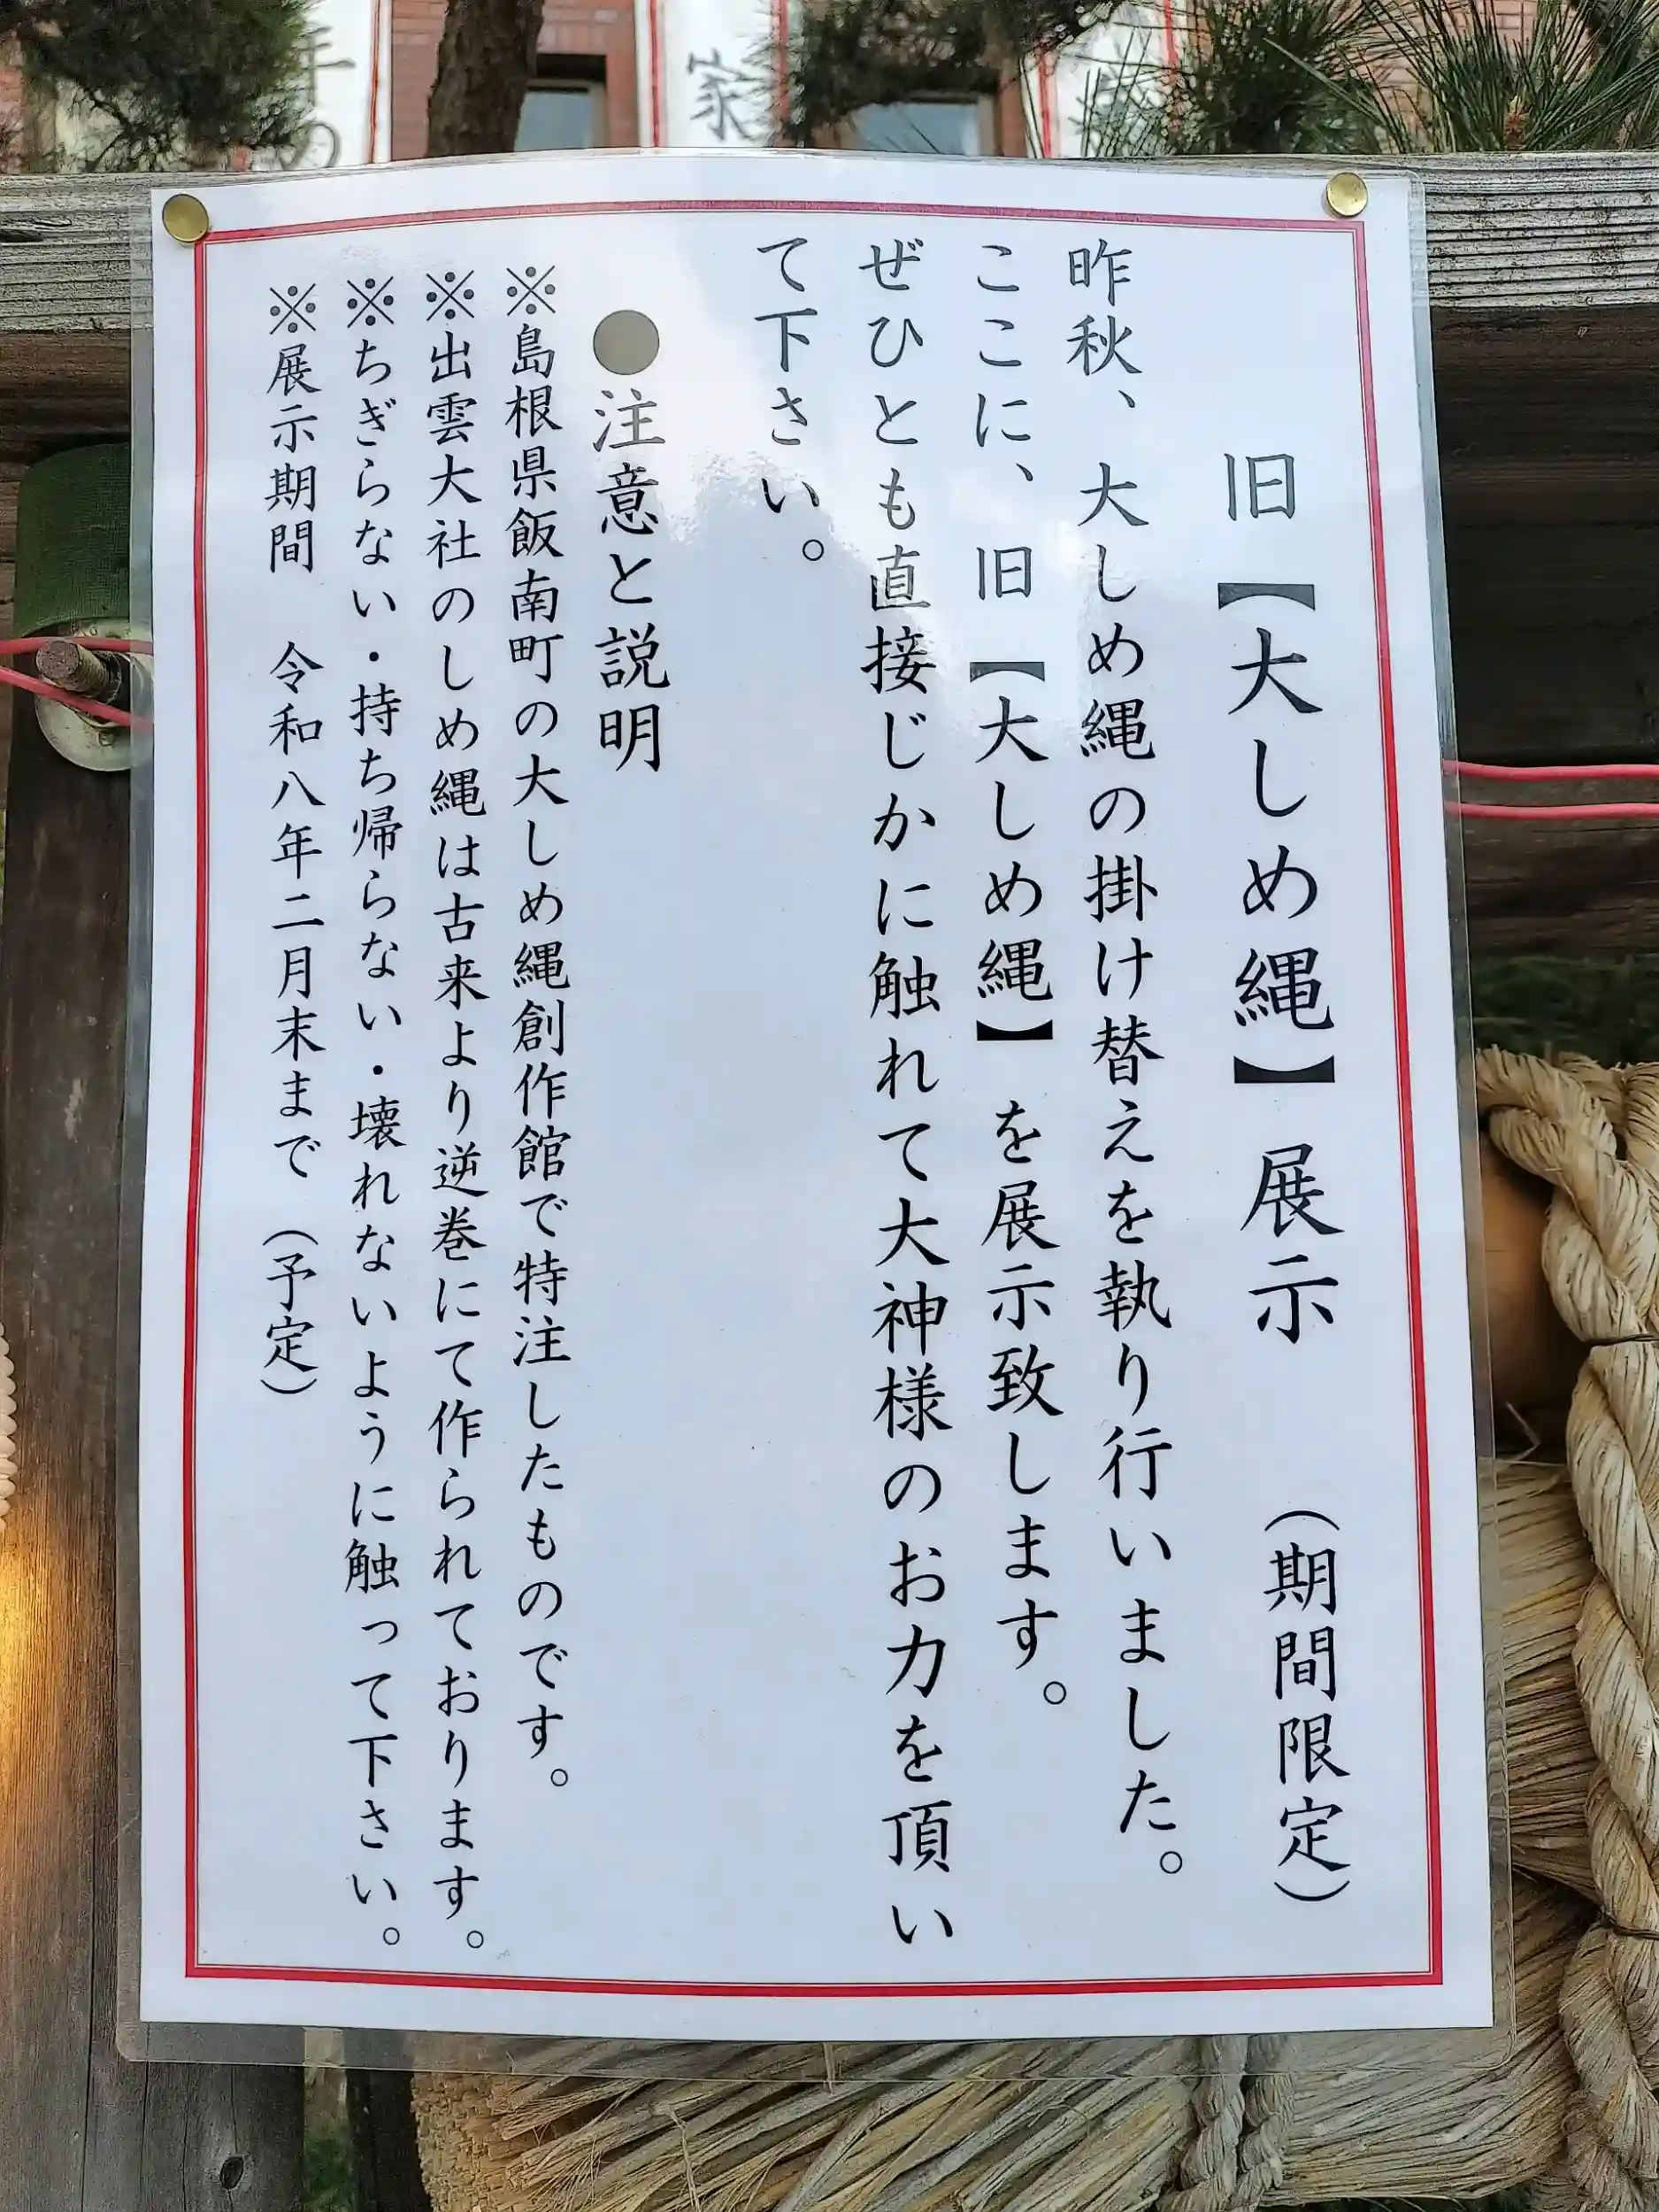 家
旧【大しめ縄】展示　（期間限定）
昨秋、大しめ縄の掛け替えを執り行いました。
ここに、旧【大しめ縄】を展示致します。
ぜひとも直接じかに触れて大神様のお力を頂い
て下さい。
●注意と説明
※島根県飯南町の大しめ縄創作館で特注したものです。
※出雲大社のしめ縄は古来より逆巻にて作られております。
※ちぎらない・持ち帰らない・壊れないように触って下さい。
※展示期間　令和八年二月末まで（予定）